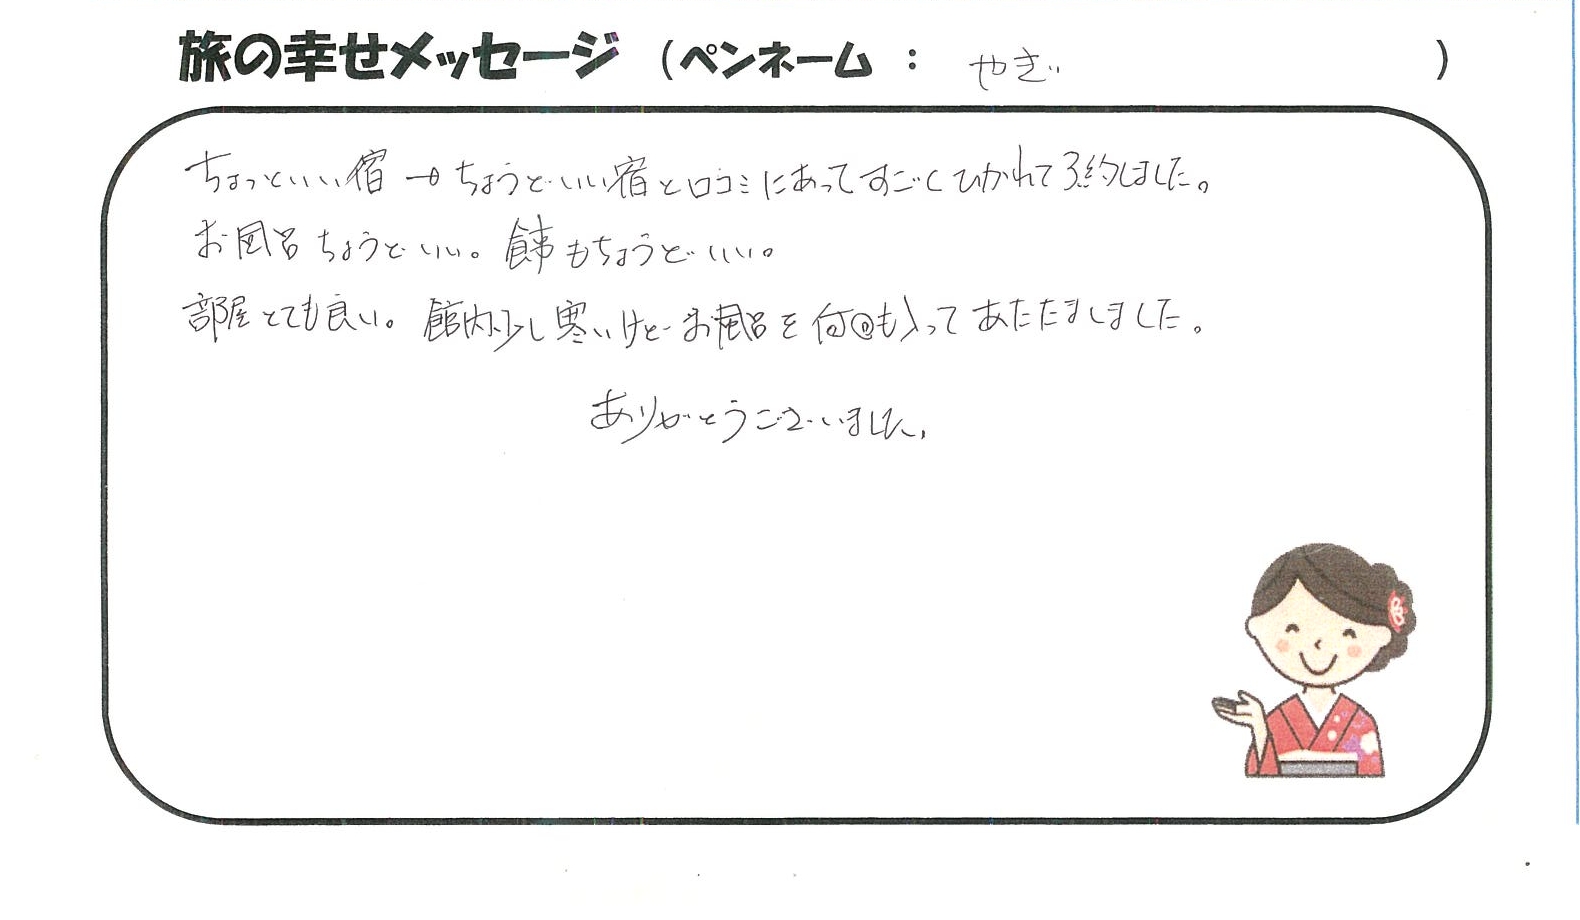 旅の幸せメッセージ (ペンネーム : やぎ )
ちょっといい宿→ちょうどいい宿と口コミにあってすごくひかれて予約しました。
お風呂ちょうどいい。食事もちょうどいい。
部屋とても良い。館内少し寒いけどお風呂を何回も入ってあたたまりました。
ありがとうございました。